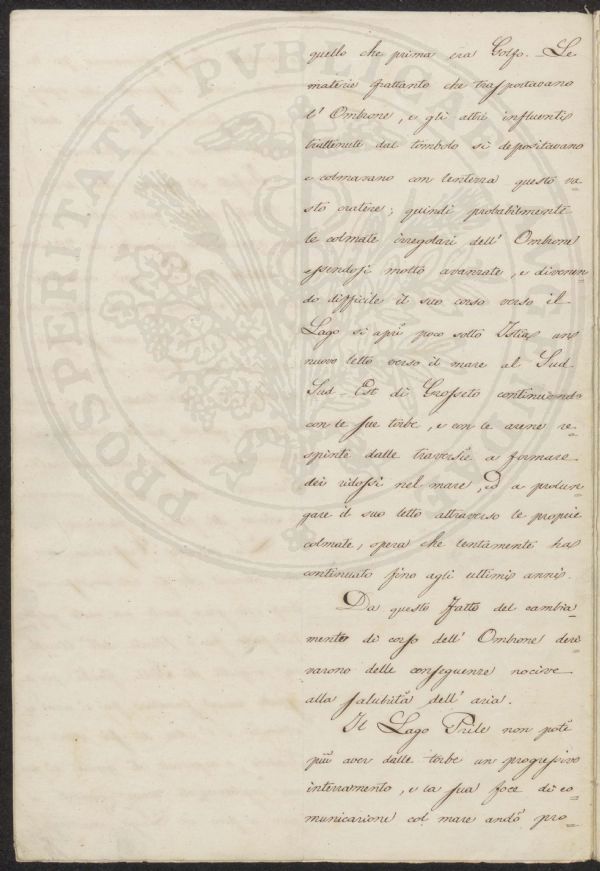 quello che prima era Golfo. Le
materie frattanto che trasportavano
l' Ombrone, e gli altri influenti
trattenute dal tombolo si depositavano
e colmavano con lentezza questo va=
sto cratere; quindi probabilmente
le colmate irregolari dell' Ombrone
essendosi molto avanzate, e divenen=
do difficile il suo corso verso il
Lago si aprì poco sotto Istia un
nuovo letto verso il mare al Sud-
Sud-Est di Grosseto continuando
con le sue torbe, e con le arene re=
spinte dalle traversie a formare
dei ridossi nel mare, ed a prolun=
gare il suo letto attraverso le proprie
colmate, opera che lentamente ha
continuato fino agli ultimi anni.
Da questo fatto del cambia=
mento di corso dell' Ombrone deri=
varono delle conseguenze nocive
alla salubrità dell' aria.
Il Lago Prile non potè
più aver dalle torbe un progressivo
interramento, e la sua foce di co=
municazione col mare andò pro=
PROSPERITATI PVBLICAE